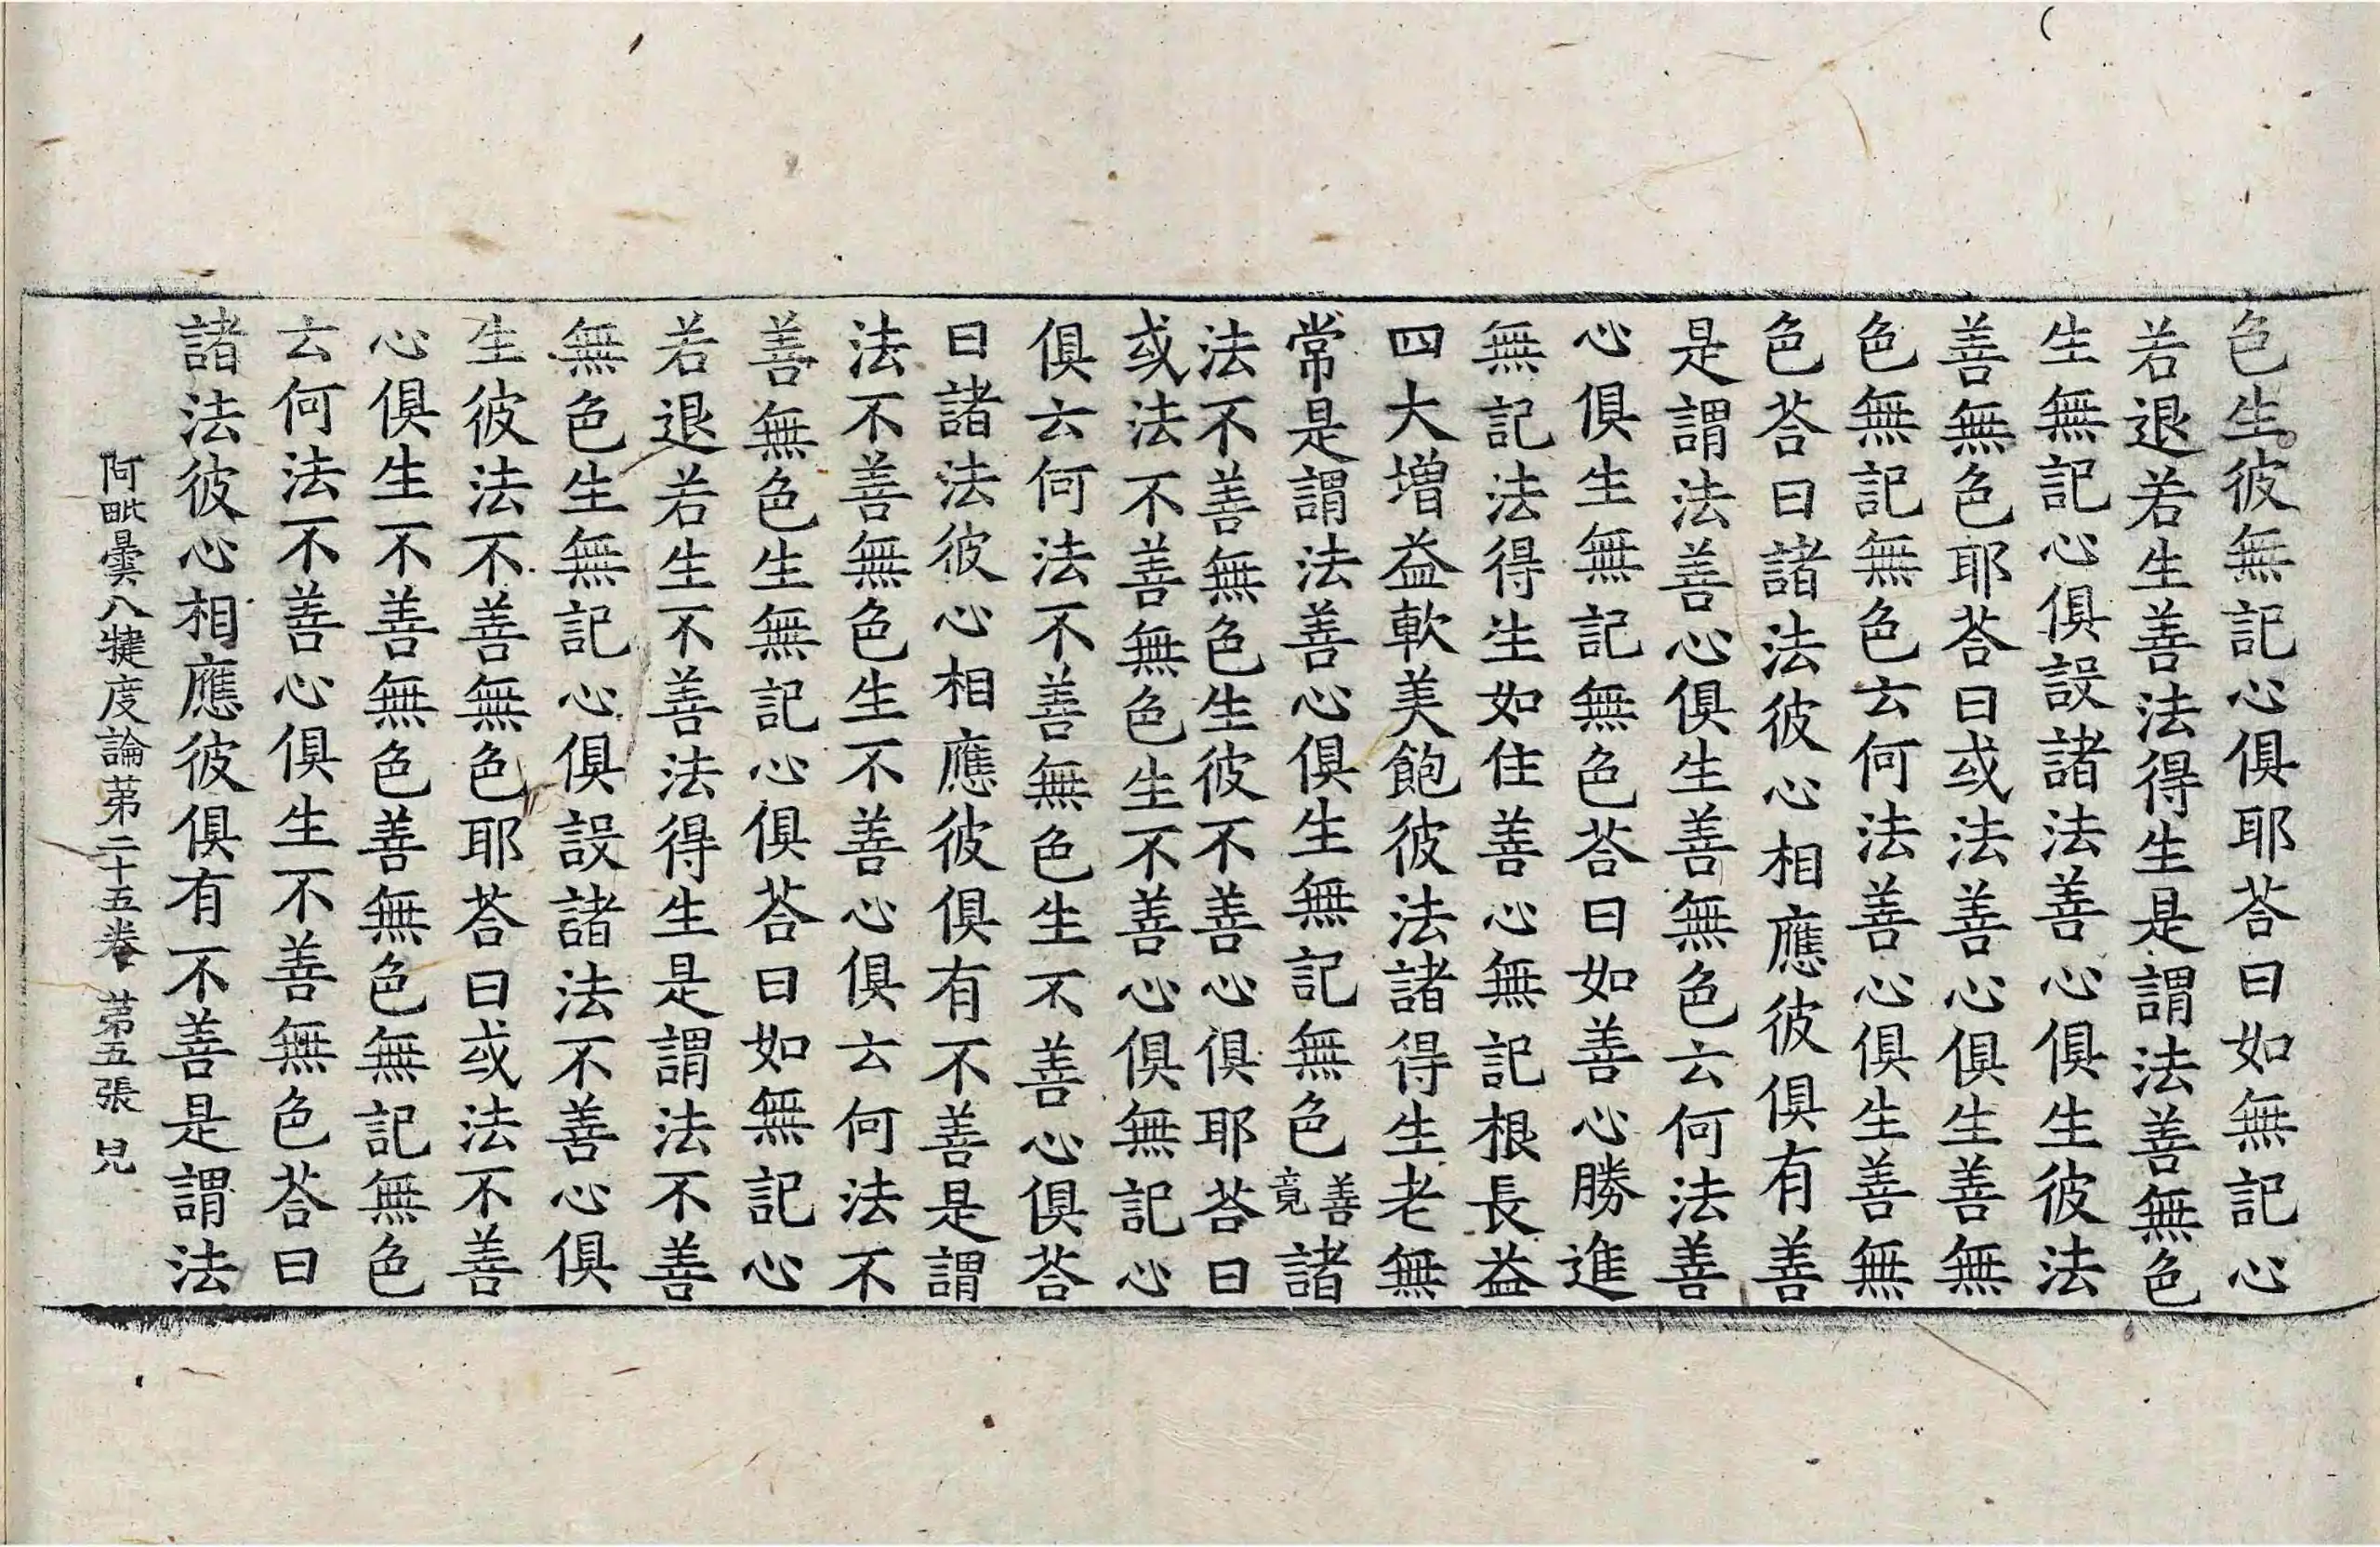 色生彼無記心俱耶荅曰如無記心
若退若生善法得生是謂法善無色
生無記心俱設諸法善心俱生彼法
善無色耶荅曰或法善心俱生善無
色無記無色云何法善心俱生善無
色荅曰諸法彼心相應彼俱有善
是謂法善心俱生善無色云何法善
心俱生無記無色荅曰如善心勝進
無記法得生如住善心無記根長益
四大增益軟美飽彼法諸得生老無
常是謂法善心俱生無記無色善竟諸
法不善無色生彼不善心俱耶荅曰
或法不善無色生不善心俱無記心
俱云何法不善無色生不善心俱荅
曰諸法彼心相應彼俱有不善是謂
法不善無色生不善心俱云何法不
善無色生無記心俱荅曰如無記心
若退若生不善法得生是謂法不善
無色生無記心俱設諸法不善心俱
生彼法不善無色耶荅曰或法不善
心俱生不善無色善無色無記無色
云何法不善心俱生不善無色荅曰
諸法彼心相應彼俱有不善是謂法
阿毗曇八犍度論苐二十五卷 苐五張 兒